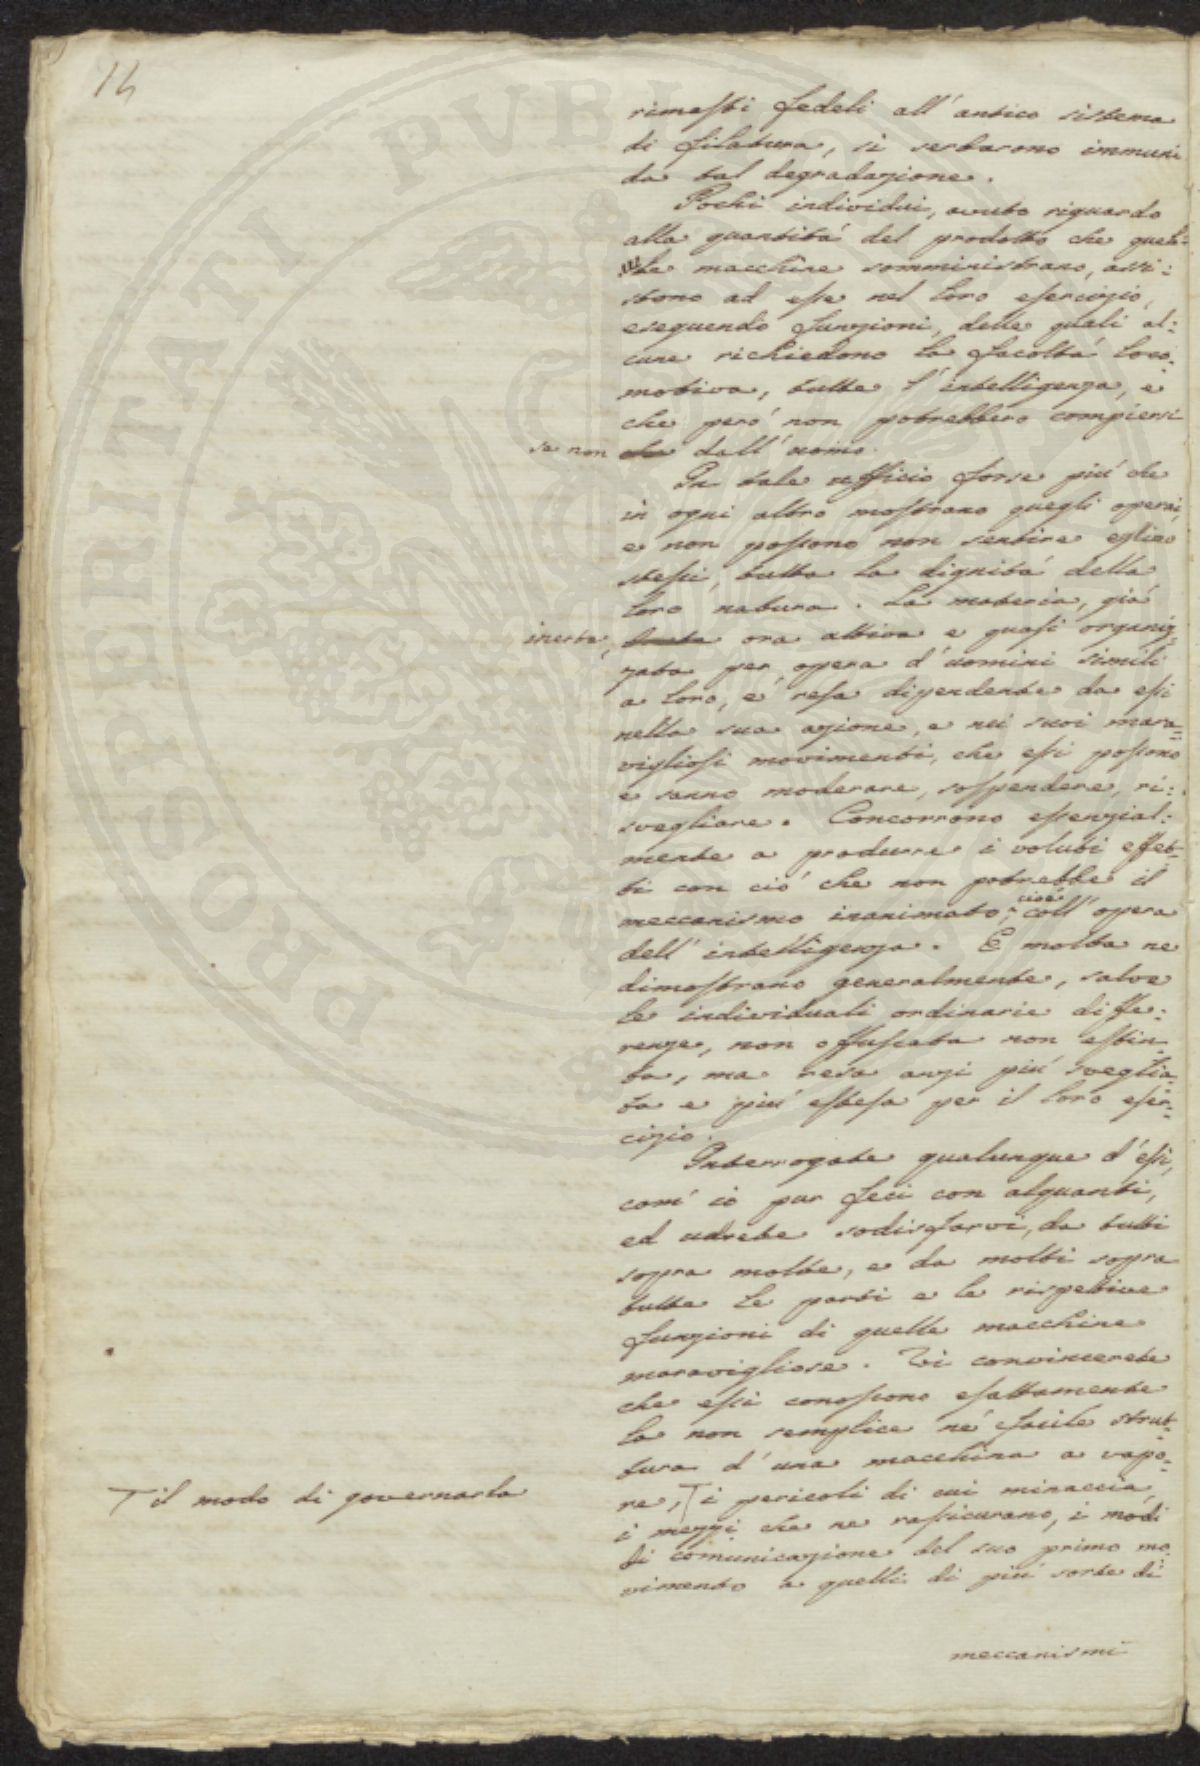 14
rimasti fedeli all'antico sistema
di filatura, si serbarono immuni
da tal degradazione.
Pochi individui, avuto riguardo
alla quantità del prodotto che quel-
le macchine somministrano, assi:
stono ad esse nel loro esercizio,
eseguendo funzioni, delle quali al:
cune richiedono la facoltà loco:
motiva, tutte l'intelligenza, e
che però non potrebbero compiersi
se non che dall'uomo.
In tale ufficio forse più che
in ogni altro mostrano quegli operai,
e non possono non sentire eglino
stessi, tutta la dignità della
loro natura. La materia, già
inerte, ora attiva e quasi organiz:
zata per opera d'uomini simili
a loro, è resa dipendente da essi
nella sua azione, e nei suoi mara:
vigliosi movimenti, che essi possono
e sanno moderare, sospendere, ri:
svegliare. Concorrono essenzial:
mente a produrre i voluti effet:
ti con ciò che non potrebbe il
meccanismo inanimato, cioè coll'opera
dell'intelligenza. E molta ne
dimostrano generalmente, salve
le individuali ordinarie diffe:
renze, non offuscata non estin:
ta, ma resa anzi più sveglia:
ta e più estesa per il loro eser:
cizio.
Interrogate qualunque d'essi,
com'io pur feci con alquanti,
ed udrete sodisfarvi, da tutti
sopra molte, e da molti sopra
tutte le parti e le rispettive
funzioni di quelle macchine
maravigliose. Vi convincerete
che essi conoscono esattamente
la non semplice nè facile strut:
tura d'una macchina a vapo:
T il modo di governarla
re, T i pericoli di cui minaccia,
i mezzi che ne rassicurano, i modi
di comunicazione del suo primo mo:
vimento a quelli di più sorte di
meccanismi
PROSPERITATI PUBLICAE